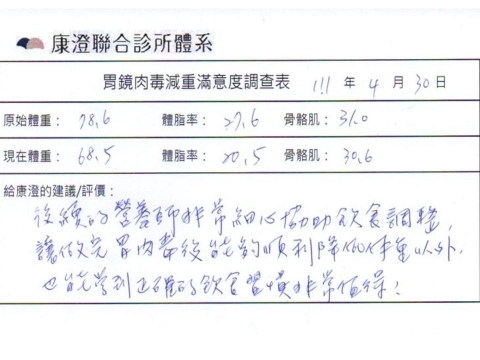 康澄聯合診所體系
胃鏡肉毒減重滿意度調查表 111 年 4 月 30 日
原始體重： 78.6 體脂率： 27.6 骨骼肌： 31.0
現在體重： 68.5 體脂率： 20.5 骨骼肌： 30.6
給康澄的建議/評價：
後續的營養師非常細心協助飲食調整，
讓做完胃肉毒後能夠順利降低体重以外，
也能學到正確的飲食習慣非常值得！